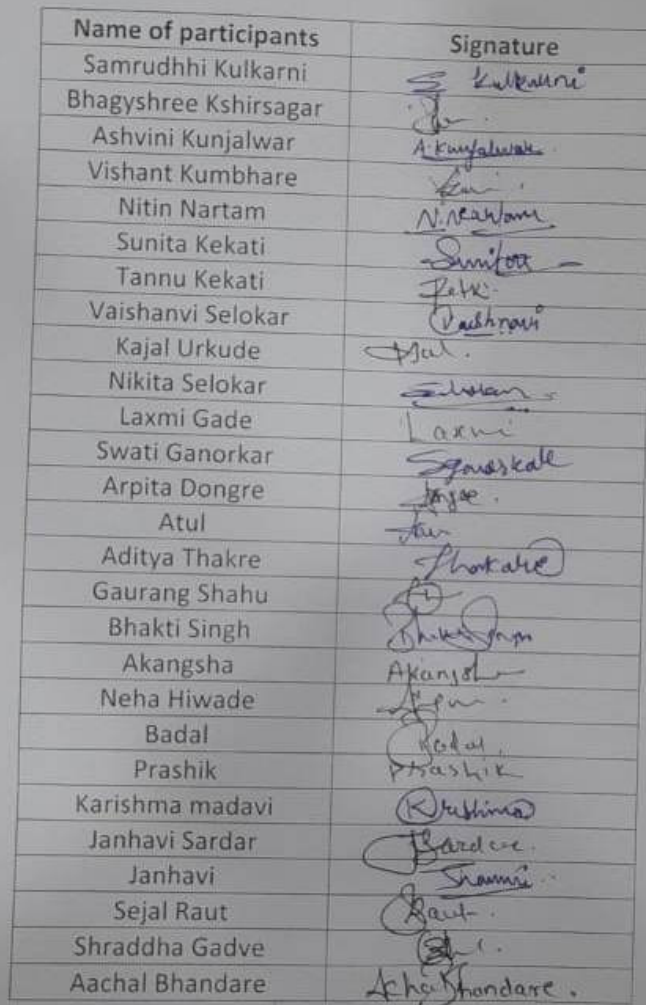 Name of participants Signature
Samrudhhi Kulkarni S Kulkarni
Bhagyshree Kshirsagar
Ashvini Kunjalwar A.Kunjalwar
Vishant Kumbhare
Nitin Nartam N.Nartam
Sunita Kekati Sunita
Tannu Kekati
Vaishanvi Selokar Vaishnavi
Kajal Urkude
Nikita Selokar
Laxmi Gade Laxmi
Swati Ganorkar
Arpita Dongre
Atul
Aditya Thakre Thakare
Gaurang Shahu
Bhakti Singh
Akangsha
Neha Hiwade
Badal Badal
Prashik Prashik
Karishma madavi Krishma
Janhavi Sardar
Janhavi
Sejal Raut Raut
Shraddha Gadve
Aachal Bhandare Achal Bhandare.